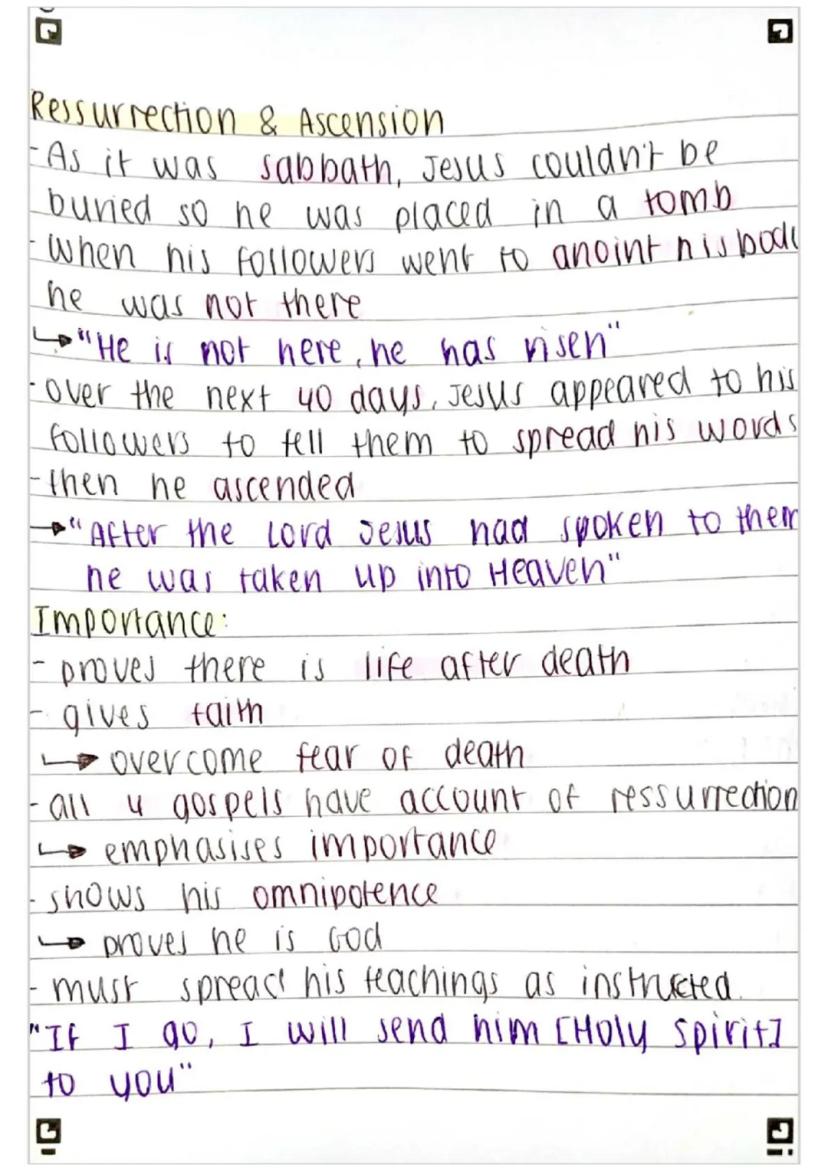 Ressurrection & Ascension
- As it was sabbath, Jesus couldn't be
buried so he was placed in a tomb
- When his followers went to anoint his bod
he was not there
↳ "He is not here, he has risen"
- over the next 40 days, Jesus appeared to his
followers to tell them to spread his words
- then he ascended
→ "After the Lord Jesus had spoken to them
he was taken up into Heaven"
Importance:
- proves there is life after death
- gives faith
↳ overcome fear of death
- all 4 gospels have account of ressurrection
↳ emphasises importance
- shows his omnipotence
↳ proves he is God
- must spread his teachings as instructed.
"If I go, I will send him [Holy Spirit]
to you"